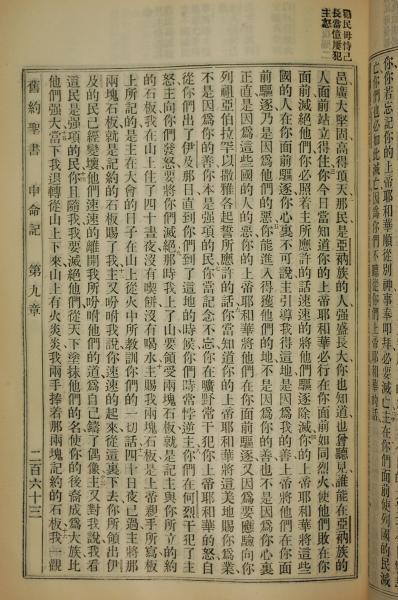 你你若忘記你的上帝耶和華順從別神事奉叩拜必要滅亡主在你們面前使列國的民滅
亡你們也必如此滅亡因爲你們不聽從你們上帝耶和華的話
勸民毋恃己
長當憶屢犯
主怒
邑廣大堅固高得頂天那民是亞衲族的人強盛長大你也知道也曾聽見誰能在亞衲族的
人面前站立得住你今日當知道你的上帝耶和華必行在你面前如同烈火使他們敗在你
面前滅絕他們你必照着主所應許的話速速的將他們驅逐除滅你的上帝耶和華將這些
國的人在你面前驅逐你心裏不可說主引導我得這地是因爲我的善上帝將他們在你面
前驅逐乃是因爲他們的惡你能進入得獲他們的地不是因爲你的善不是因爲你心裏
正直是因爲這些國的人的惡你的上帝耶和華將他們在你面前驅逐又因爲要應驗向你
列祖亞伯拉罕以撒雅各起誓所應許的話你當知道你的上帝耶和華將這美地賜你爲業
不是因爲你的善你本是强項的民你當記念不忘你在曠野常干犯你上帝耶和華的怒自
從你們出了伊及那日直到你們到了這地的時候你們時常悖逆主你們在何烈干犯了主
怒主向你們發怒要將你們滅絕那時我上了山要領受兩塊石板就是記主與你所立的約
的石板我在山上住了四十晝夜沒有喫餅沒有喝水主賜我兩塊石板是上帝親手所寫板
上所記的是主在大會的日子在山上從火中所教訓你們的一切話四十日夜已過主將那
兩塊石板就是記約的石板賜了我主又吩咐我說你速速的起來從這裏下去你所領出伊
及的民已經變壞他們速速的離開我所吩咐他們的道爲自己鑄了偶像主又對我說我看
這民是强項的民你且隨我我要滅絕他們從天下塗抹他們的名使你的後裔成爲大族比
他們强大當下我退轉從山上下來山上有火炎炎我兩手捧着那兩塊記約的石板我一觀
舊約聖書 申命記 第九章 二百六十三